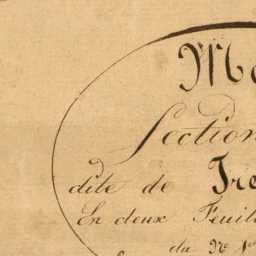 Section
dite de Tre
En deux Feuil
du N° 1er